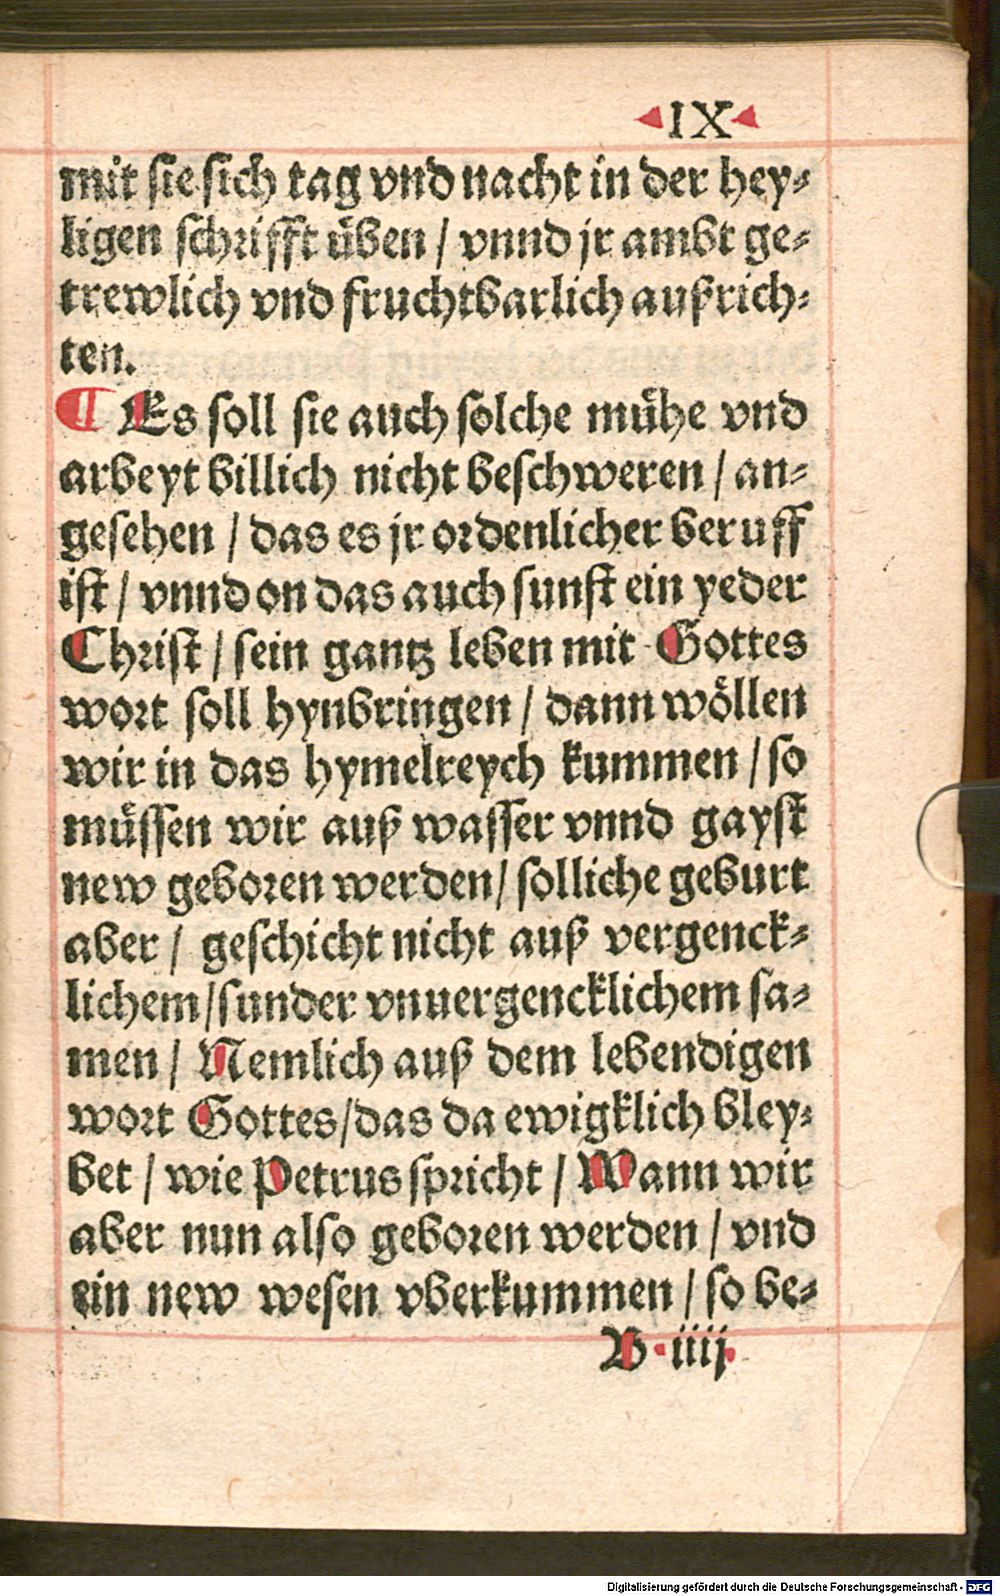 IX
mit sie sich tag vnd nacht in der hey-
ligen schrifft üben / vnnd jr ambt ge-
trewlich vnd fruchtbarlich außrich-
ten.
¶ Es soll sie auch solche mühe vnd
arbeyt billich nicht beschweren / an-
gesehen / das es jr ordenlicher beruff
ist / vnnd on das auch sunst ein yeder
Christ / sein gantz leben mit Gottes
wort soll hynbringen / dann wöllen
wir in das hymelreych kummen / so
müssen wir auß wasser vnnd gayst
new geboren werden / solliche geburt
aber / geschicht nicht auß vergenck-
lichem / sunder vnuergencklichem sa-
men / Nemlich auß dem lebendigen
wort Gottes / das da ewigklich bley-
bet / wie Petrus spricht / Wann wir
aber nun also geboren werden / vnd
ein new wesen vberkummen / so be-
B iiij
Digitalisierung gefördert durch die Deutsche Forschungsgemeinschaft - DFG